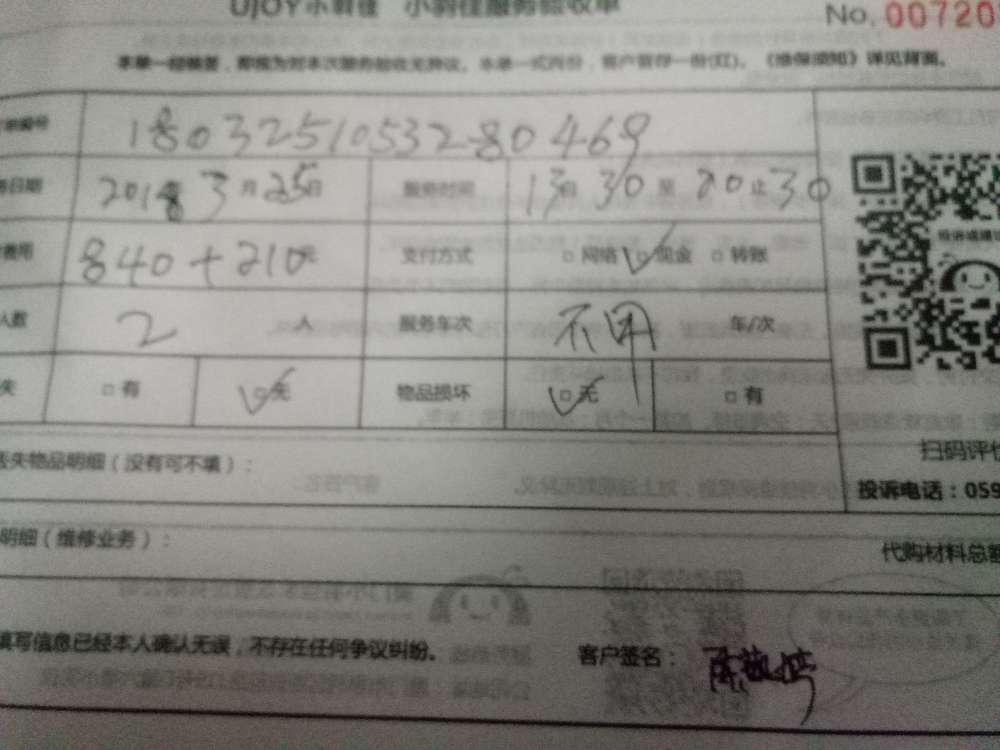 UJOY小羽佳 小羽佳服务验收单
No. 00720
本单一经签署，即视为对本次服务验收无异议。本单一式两份，客户留存一份(红)。《维保须知》详见背面。
编号 1803251053280469
日期 2018年3月25日 服务时间 13自30至20止30
费用 840+210元 支付方式 □网络 ☑现金 □转账
人数 2人 服务车次 不用 年/次
失 □有 ☑无 物品损坏 ☑无 □有
丢失物品明细（没有可不填）：
扫码评价
投诉电话：059
明细（维修业务）：
代购材料总额
填写信息已经本人确认无误，不存在任何争议纠纷。 客户签名：